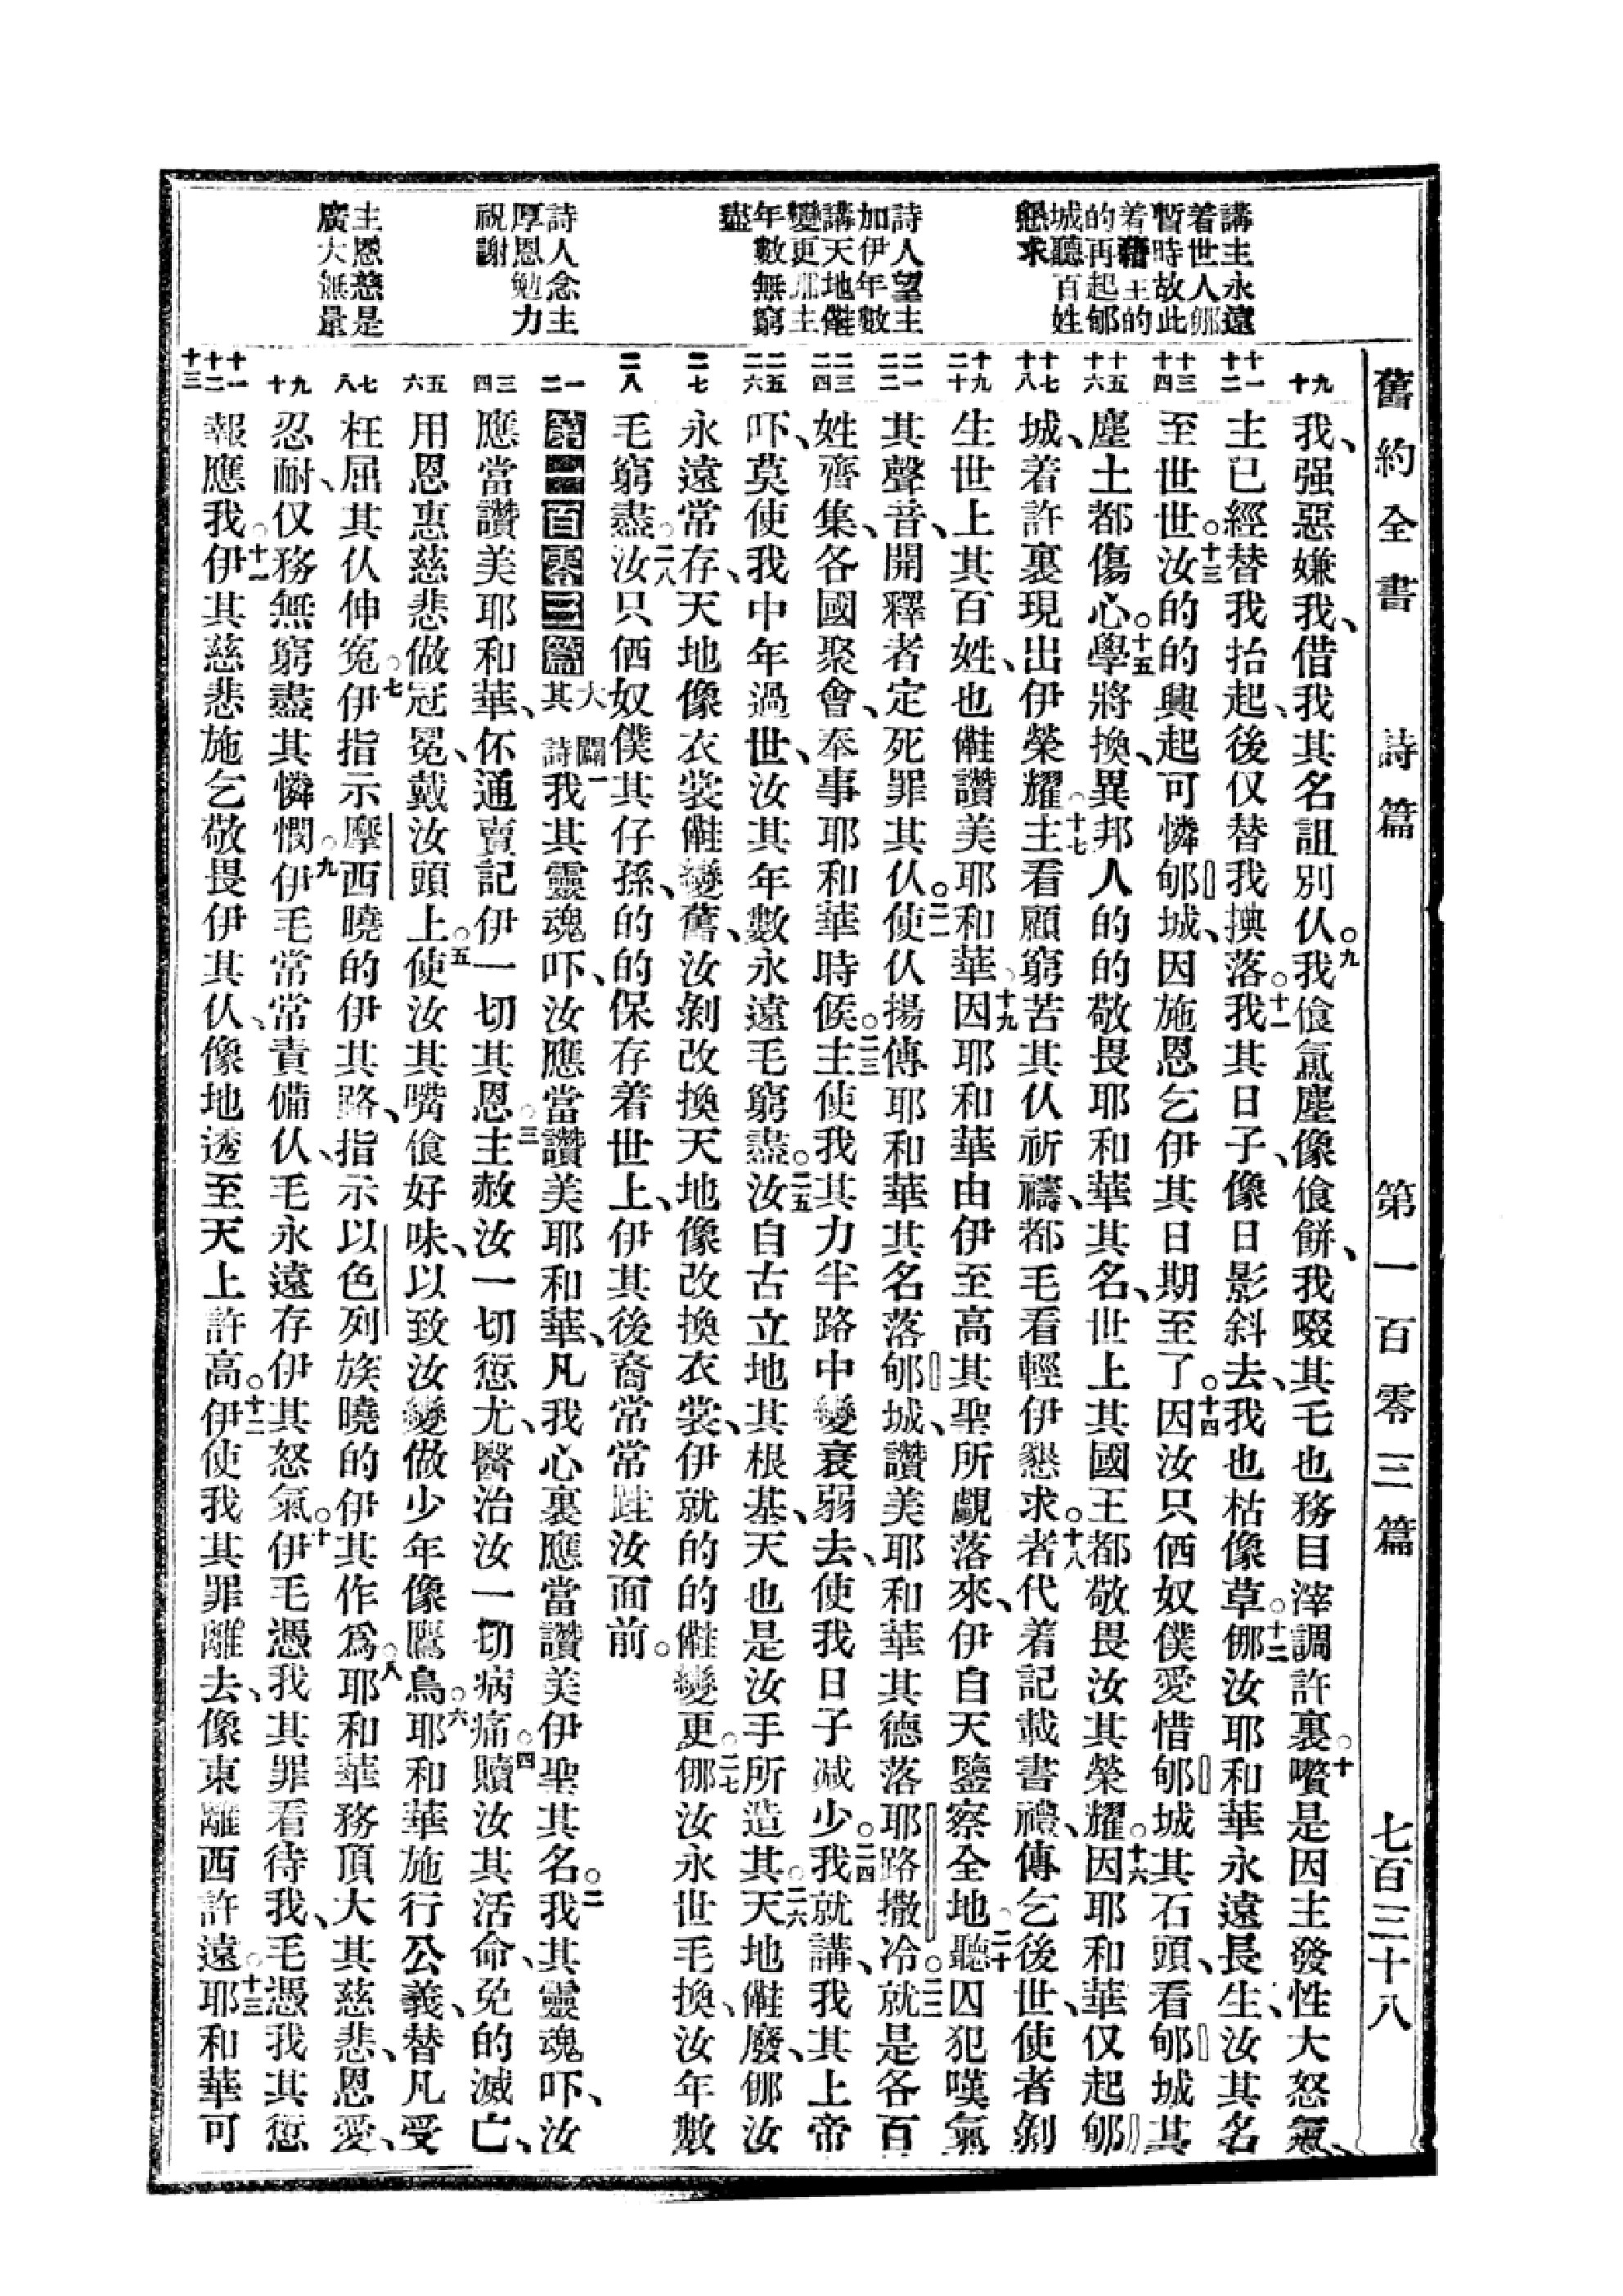 舊約全書 詩篇 第一百零三篇 七百三十八
講主永遠
着世人㑚
暫時故此
着藉主的
的再起郇
城聽百姓
懇求
詩人望主
加伊年數
講天地㒰
變更㑚主
年數無窮
盡
詩人念主
厚恩勉力
祝謝
主恩慈是
廣大無量
九 十
我、强惡嫌我、借我其名詛別仈。九我飡氲塵像飡餅、我啜其乇也務目滓調許裏。十㘔是因主發性大怒氣、
十一 十二
主已經替我抬起、後仅替我㨻落。十一我其日子、像日影斜去、我也枯像草。十二㑚汝耶和華永遠長生、汝其名
十三 十四
至世世。十三汝的的興起可憐郇城、因施恩乞伊其日期至了。十四因汝只伵奴僕愛惜郇城其石頭、看郇城其
十五 十六
塵土都傷心。十五學將換、異邦人的的敬畏耶和華其名、世上其國王都敬畏汝其榮耀。十六因耶和華仅起郇
十七 十八
城、着許裏現出伊榮耀。十七主看顧窮苦其仈祈禱、都毛看輕伊懇求。十八者代着記載書禮、傳乞後世、使者剝
十九 二十
生世上其百姓、也㒰讚美耶和華。十九因耶和華由伊至高其聖所覰落來、伊自天鑒察全地。二十聽囚犯嘆氣
二一 二二
其聲音、開釋者定死罪其仈。二一使仈揚傳耶和華其名落郇城、讚美耶和華其德落耶路撒冷。二二就是各百
二三 二四
姓齊集、各國聚會、奉事耶和華時候。二三主使我其力半路中變衰弱去、使我日子減少。二四我就講、我其上帝
二五 二六
吓、莫使我中年過世、汝其年數永遠毛窮盡。二五汝自古立地其根基、天也是汝手所造其。二六天地㒰廢、㑚汝
二七
永遠常存、天地像衣裳㒰變舊、汝剝改換天地像改換衣裳、伊就的的㒰變更。二七㑚汝永世毛換、汝年數
二八
毛窮盡。二八汝只伵奴僕其仔孫、的的保存着世上、伊其後裔常常跬汝面前。
一 二
第一百零三篇 大闢其詩 一我其靈魂吓、汝應當讚美耶和華、凡我心裏應當讚美伊聖其名。二我其靈魂吓、汝
三 四
應當讚美耶和華、伓通賣記伊一切其恩。三主赦汝一切愆尤、醫治汝一切病痛。四贖汝其活命、免的滅亡、
五 六
用恩惠慈悲做冠冕、戴汝頭上。五使汝其嘴飡好味、以致汝變做少年像鷹鳥。六耶和華施行公義、替凡受
七 八
枉屈其仈伸冤。七伊指示摩西曉的伊其路、指示以色列族曉的伊其作爲。八耶和華務頂大其慈悲、恩愛、
九 十
忍耐、仅務無窮盡其憐憫。九伊毛常常責備仈、毛永遠存伊其怒氣。十伊毛憑我其罪看待我、毛憑我其愆
十一 十二 十三
報應我。十一伊其慈悲施乞敬畏伊其仈、像地透至天上許高。十二伊使我其罪離去、像東離西許遠。十三耶和華可